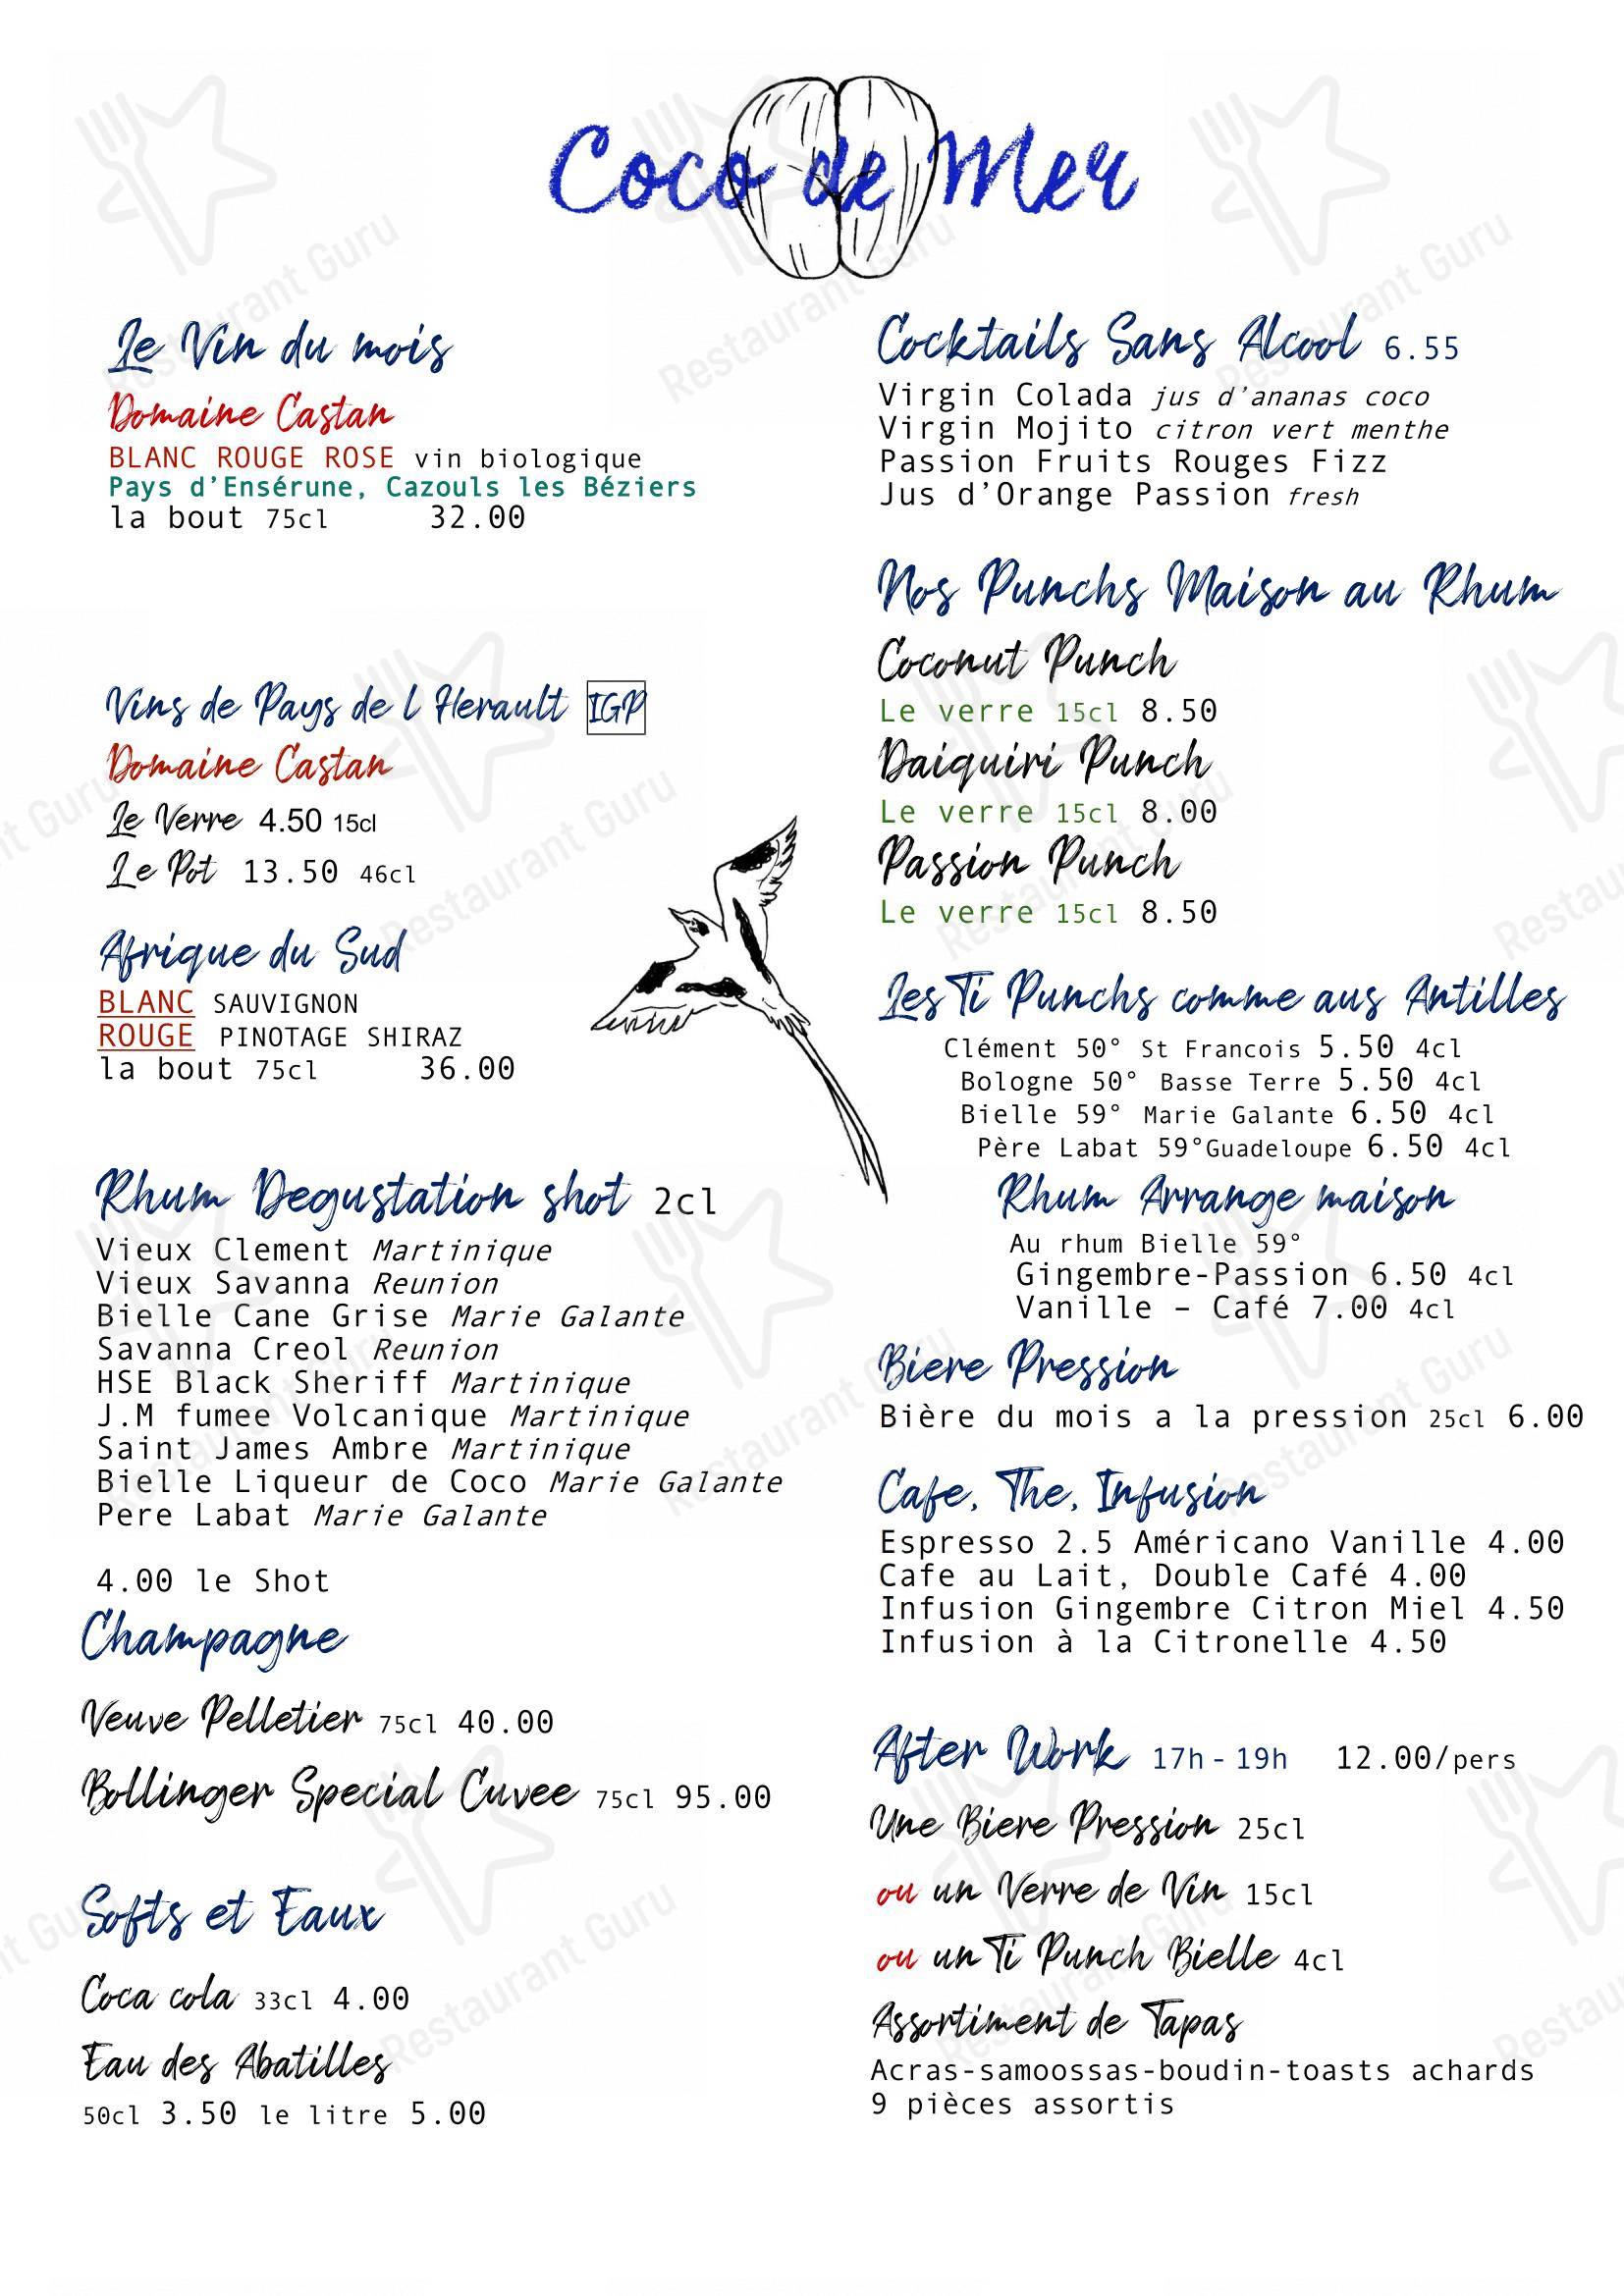 Coco de Mer
Le Vin du mois
Domaine Castan
BLANC ROUGE ROSE vin biologique
Pays d'Ensérune, Cazouls les Béziers
la bout 75cl 32.00
Vins de Pays de l Herault IGP
Domaine Castan
Le Verre 4.50 15cl
Le Pot 13.50 46cl
Afrique du Sud
BLANC SAUVIGNON
ROUGE PINOTAGE SHIRAZ
la bout 75cl 36.00
Rhum Degustation shot 2cl
Vieux Clement Martinique
Vieux Savanna Reunion
Bielle Cane Grise Marie Galante
Savanna Creol Reunion
HSE Black Sheriff Martinique
J.M fumee Volcanique Martinique
Saint James Ambre Martinique
Bielle Liqueur de Coco Marie Galante
Pere Labat Marie Galante
4.00 le Shot
Champagne
Veuve Pelletier 75cl 40.00
Bollinger Special Cuvee 75cl 95.00
Softs et Eaux
Coca cola 33cl 4.00
Eau des Abatilles
50cl 3.50 le litre 5.00
Cocktails Sans Alcool 6.55
Virgin Colada jus d'ananas coco
Virgin Mojito citron vert menthe
Passion Fruits Rouges Fizz
Jus d'Orange Passion fresh
Nos Punchs Maison au Rhum
Coconut Punch
Le verre 15cl 8.50
Daiquiri Punch
Le verre 15cl 8.00
Passion Punch
Le verre 15cl 8.50
Les Ti Punchs comme aus Antilles
Clément 50° St Francois 5.50 4cl
Bologne 50° Basse Terre 5.50 4cl
Bielle 59° Marie Galante 6.50 4cl
Père Labat 59°Guadeloupe 6.50 4cl
Rhum Arrange maison
Au rhum Bielle 59°
Gingembre-Passion 6.50 4cl
Vanille – Café 7.00 4cl
Biere Pression
Bière du mois a la pression 25cl 6.00
Cafe, The, Infusion
Espresso 2.5 Américano Vanille 4.00
Cafe au Lait, Double Café 4.00
Infusion Gingembre Citron Miel 4.50
Infusion à la Citronelle 4.50
After Work 17h - 19h 12.00/pers
Une Biere Pression 25cl
ou un Verre de Vin 15cl
ou un Ti Punch Bielle 4cl
Assortiment de Tapas
Acras-samoossas-boudin-toasts achards
9 pièces assortis
Restaurant Guru